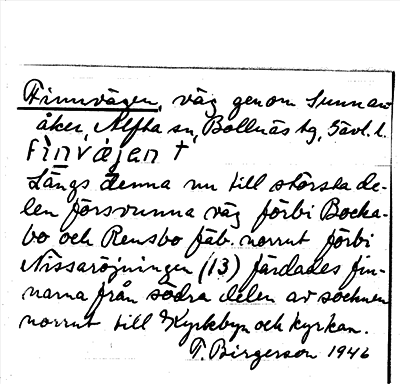 Finnvägen, väg genom Sunnan-
åker, Alfta sn, Bollnäs tg, Gävl. l.
finväjen †
Längs denna nu till största de-
len försvunna väg förbi Bocka-
bo och Rensbo fäb. norrut förbi
Nissaröjningen (13) färdades fin-
narna från södra delen av socknen
norrut till Kyrkbyn och kyrkan.
T. Birgerson 1946